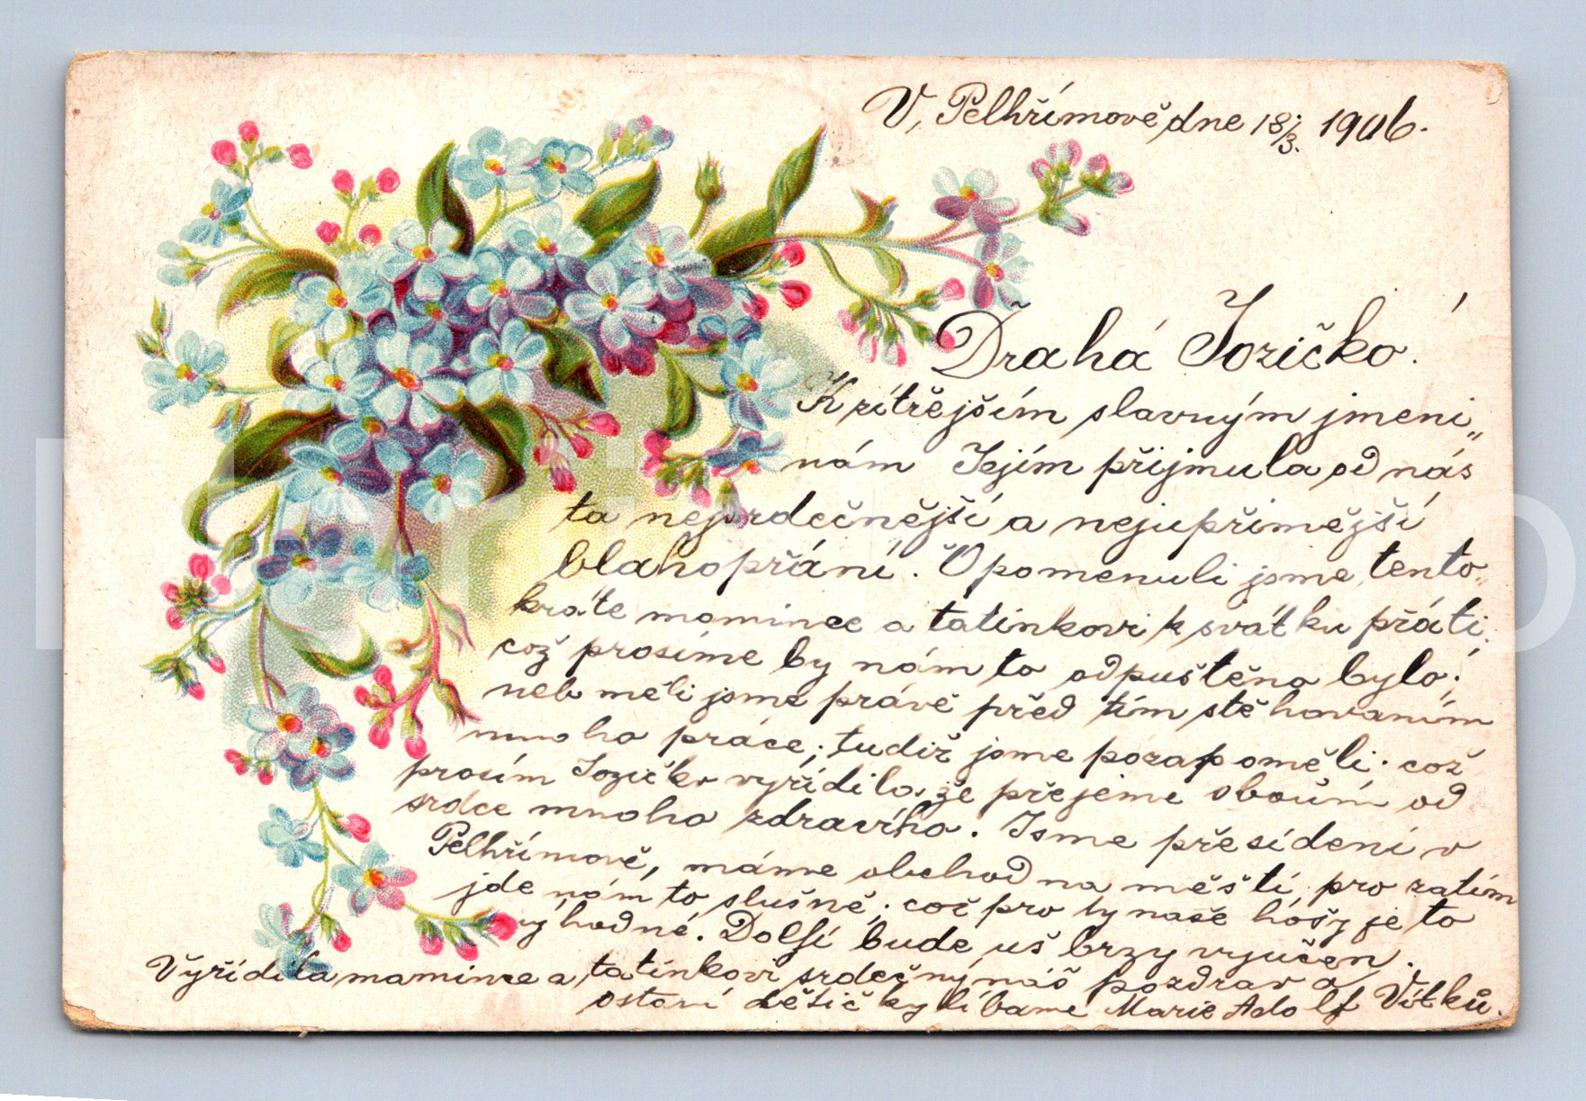 V, Pelhřimově dne 18/3. 1906.
Drahá Jozičko.
K zítřejším slavným jmeni„
nám Jejím přijmula od nás
ta nejsrdečnější a nejupřimější
blahopřání. Opomenuli jsme tento„
kráte mamince a tatínkovi k svátku přáti,
což prosíme by nám to odpuštěno bylo;
neb měli jsme právě před tím stěhovaním
mnoho práce; tudíž jsme pozapoměli. což
prosím Jozičko vyřídila, že přejeme oboum od
srdce mnoho zdravího. Jsme přesídleni v
Pelhřimově, máme obchod na městí, pro zatím
jde nám to slušně; což pro ty naše hóšy je to
výhodné. Dolfí bude uš brzy vyjučen.
Vyřídila mamince a tatínkovi srdečný náš pozdrav a
ostaní děťičky líbáme Marie Adolf Vítků.